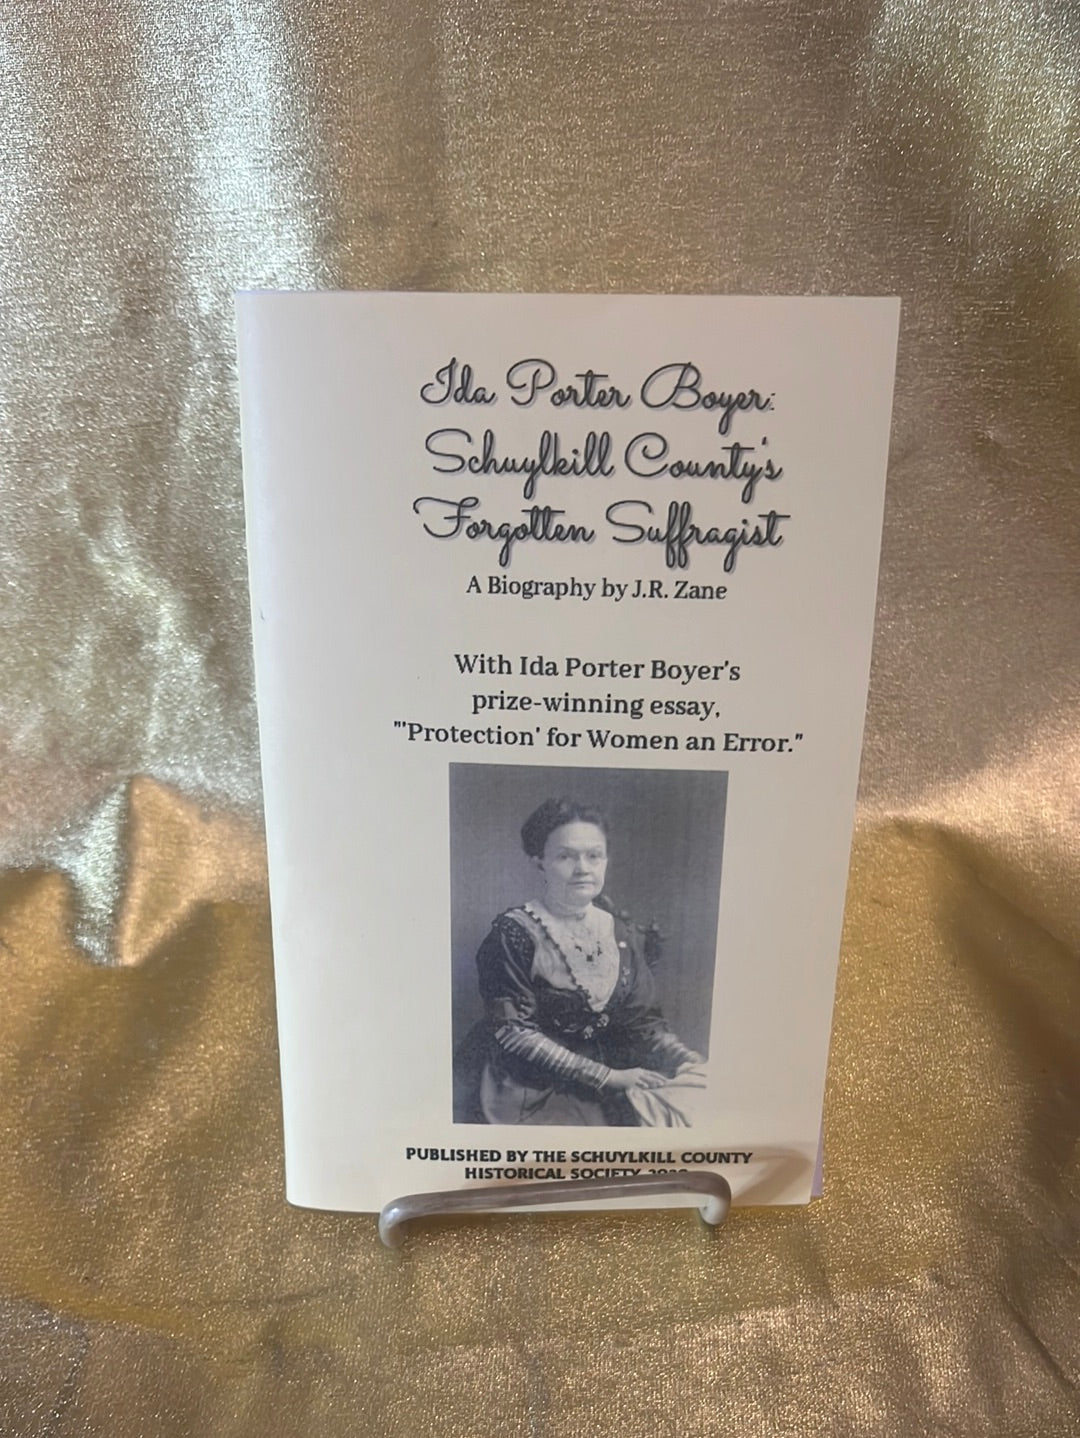 Ida Porter Boyer:
Schuylkill County's
Forgotten Suffragist
A Biography by J.R. Zane
With Ida Porter Boyer's
prize-winning essay,
"'Protection' for Women an Error."
PUBLISHED BY THE SCHUYLKILL COUNTY
HISTORICAL SOCIETY